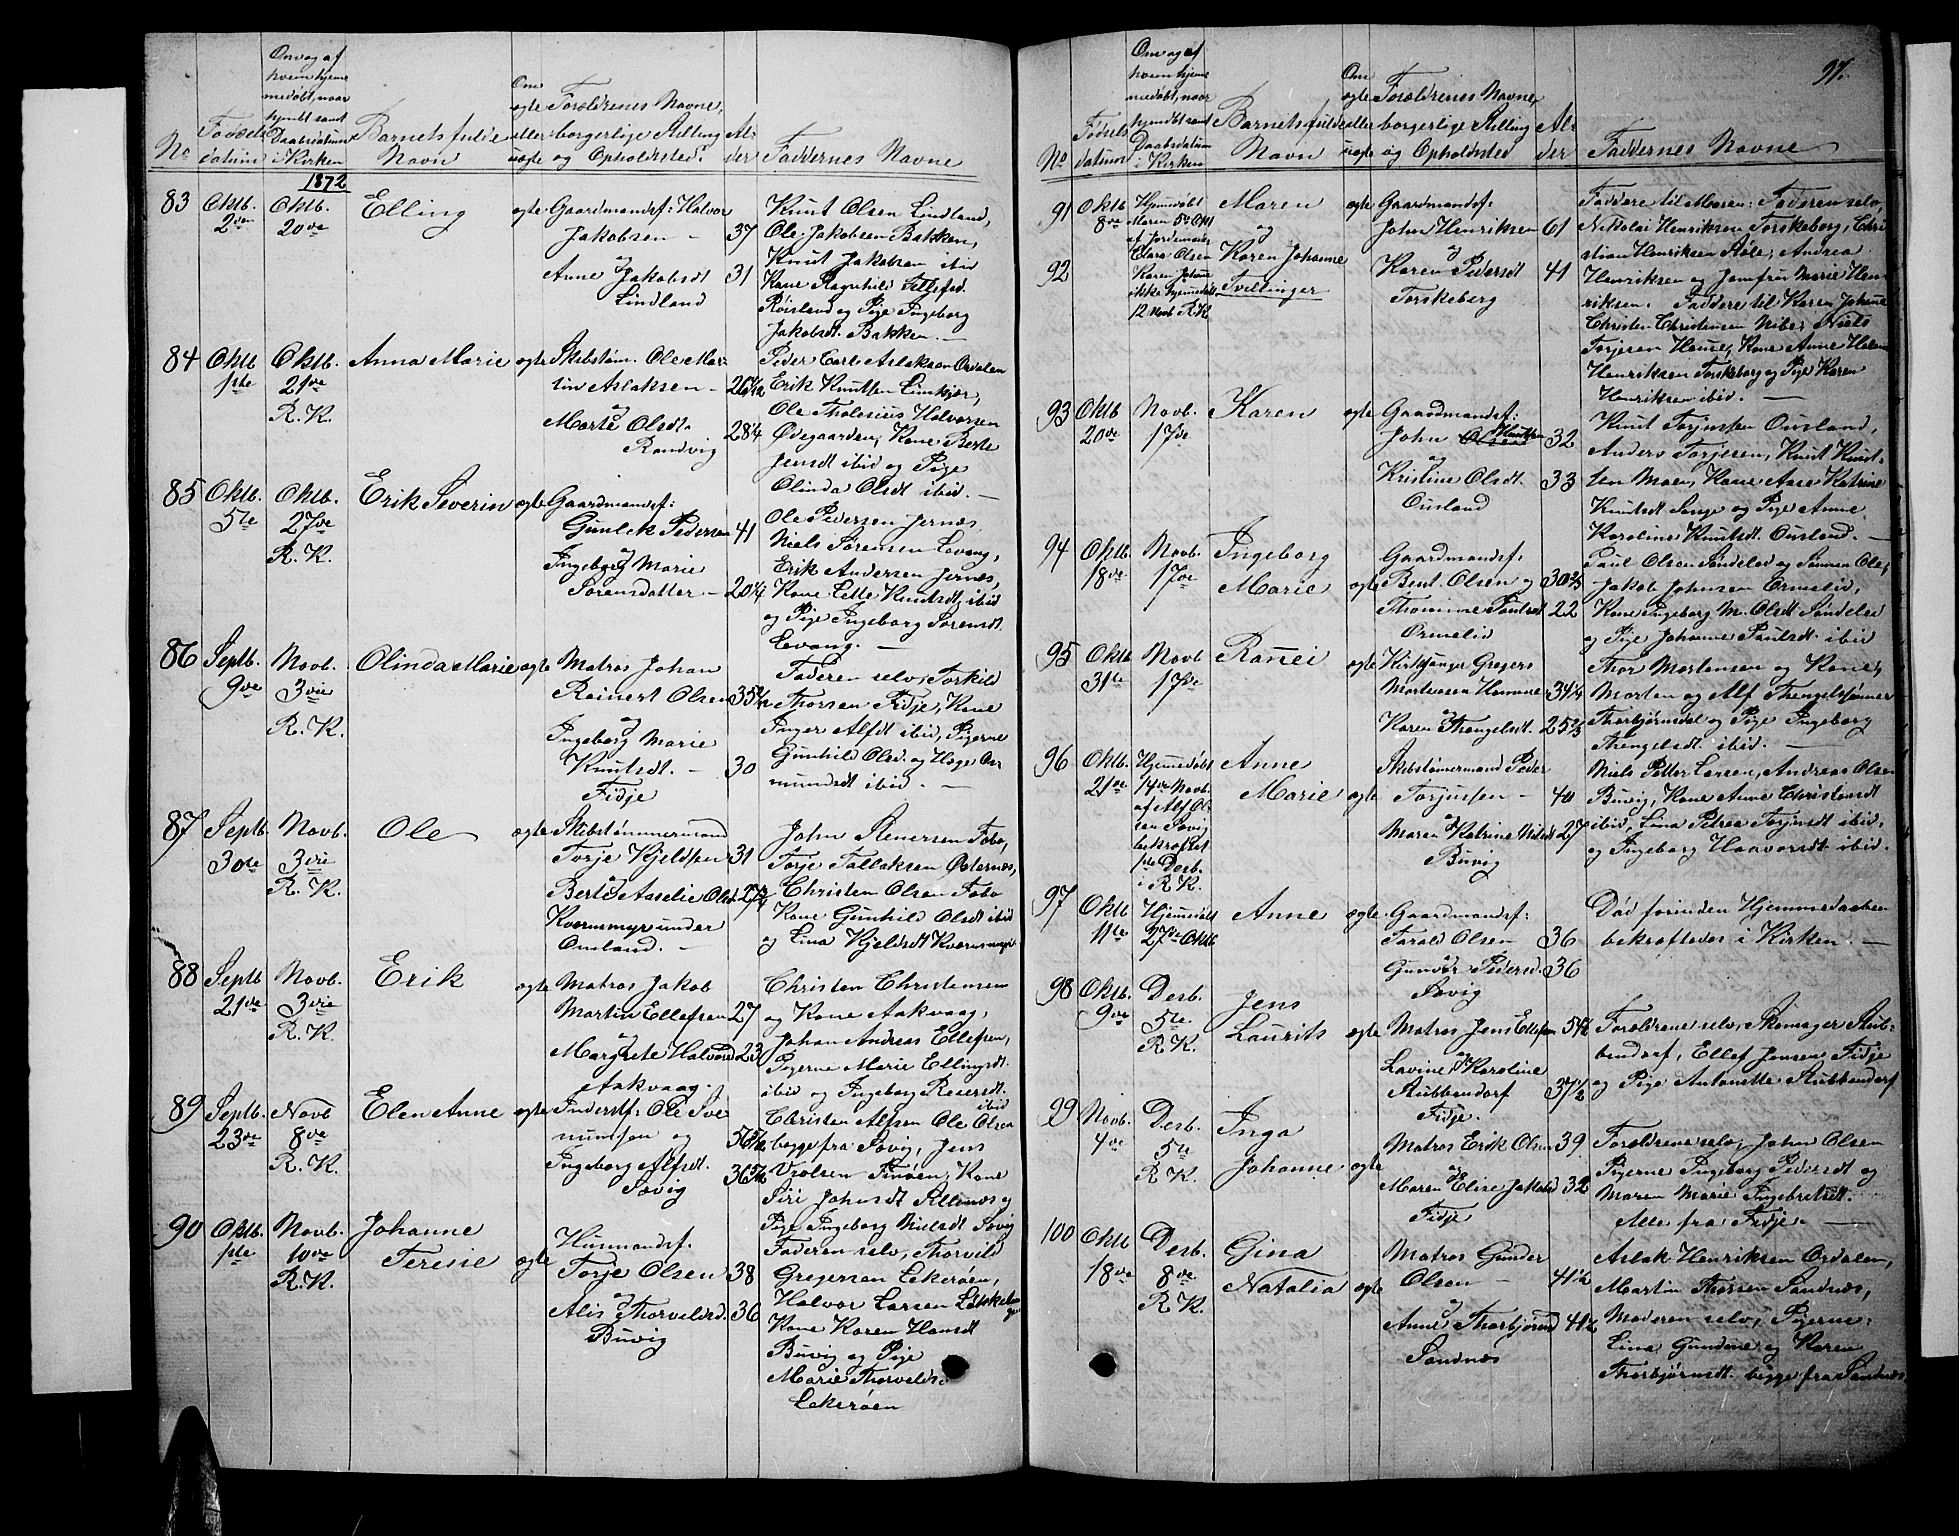 No
Fødsels datum
Om og af hvem hjemmedøbt, naar hjemdt samt Daabsdatum i Kirken
Barnets fulde Navn
Om ægte eller uægte
Forældrenes Navne, borgerlige Stilling og Opholdsted.
Alder
Faddernes Navne
1872
83
Oktb.
2den
Oktb.
20de
Elling
ægte
Gaardmandsf: Halvor
Jakobsen
37
og
Anne Jakobsdt
31
Lindland
Knut Olsen Lindland,
Ole Jakobsen Bakken,
Knut Jakobsen ibid
Kone Ragnhild Tellefsd.
Røisland og Pige Ingeborg
Jakobsdt. Bakken.
84
Oktb
1ste
Oktb.
21de
R. K.
Anna Marie
ægte
Skibstøm. Ole Mar
tin Aslaksen
og
Marte Olsdt.
28 1/4
Randvig
Peder Carl Aslaksen Ordalen
Erik Knutsen
Ole Tholesius Halvorsen
Ødegaarden, Kone Berte
Jensdt ibid og Pige
Olinda Olsdt ibid.
85
Oktb.
5te
Oktb.
27de
R. K.
Erik Severin
ægte
Gaardmandsf:
Gunlek Pedersen
41
og
Ingeborg Marie
Sorensdatter
20 1/4
Ole Pedersen Jernæs
Niels Sørensen Levang,
Erik Andersen Jernæs,
Kone Lette Knutsdt ibid
og Pige Ingeborg Sorensdt.
Levang.
86
Septb.
9de
Novb.
3die
R. K.
Olinda Marie
ægte
Matros Johan
Reinert Olsen
og
Ingeborg Marie
Knutsdt.
30
Fidje
Faderen selv, Torkild
Thorsen Fidje, Kone
Inger Alfdt ibid, Pigerne
Gunhild Olsd. og Hege As
mundsdt ibid.
87
Septb.
30te
Novb.
3die
R. K.
Ole
ægte
Skibstømmermand
Torje Kjeldsen
31
og
Berte Aaselie Olsdt
Kværnsmyr under
Omland.
John Stenersen Fobo,
Torje Tallaksen Østernæs,
Christen Olsen Fobo
Kone Gunhild Olsdt ibid
og Lina Kjeldsdt Kværnsmyr
88
Septb
21de
Novb.
3die
R. K.
Erik
ægte
Matros Jakob
Martin Ellefsen
27
og
Margrete Halvorsd
23
Aakvaag.
Christen Christensen
og Kone Aakvaag,
Johan Andreas Ellefsen,
Pigerne Marie Ellingsdt.
ibid og Ingeborg Reiersdt.
ibid
89
Septb.
23de
Novb
8de
R. K.
Elen Anne
ægte
Inderstf: Ole Sve
numsen og
Ingeborg Alfsdt.
Søvig
Christen Alfsen Ole Olsen
begge fra Søvig, Jens
Vrolsen Tinøen, Kone
Siri Johnsdt Stillnæs og
Pige Ingeborg Nielsdt Søvig
90
Oktb
1ste
Novb.
10de
R. K.
Johanne
Teresie
ægte
Husmandsf.
Torje Olsen
38
og
Alis Thorvildsd.
36
Buvig
Faderen selv, Thorvild
Gregersen Lekerøen,
Halvor Larsen
Kone Karen Hansdt
Buvig og Pige
Marie Thorvelds.
Lekerøen
97.
No
Fødsels datum
Om og af hvem hjemmedøbt, naar hjemdøbt samt Daabsdatum i Kirken
Barnets fulde Navn
Om ægte eller uægte
Forældrenes Navne, borgerlige Stilling og Opholdsted
Alder
Faddernes Navne
91
Oktb
8de
Hjemdøbt
Maren 5te Okt
af Jordemoder
Clara Olsen
Maren
og
ægte
Gaardmandsf:
John Henriksen
61
og
92
Karen Johane
ikke hjemdøbt
12 Novb R.K.
Karen Johanne
Tvillinger
Karen Pedersdt
41
Torskeberg
Faddere til Maren: Faderen selv,
Nikolai Henriksen Torskeberg, Chri
stian Henriksen Røle, Andrea
Henriksen og Jomfru Marie Hen
riksen. Faddere til Karen Johane
Christen Christensen Nibe, Niels
Torjesen Hause, Kone Anne Helene
Henriksen Torskeberg og Pige Karen
Henriksen ibid.
93
Oktb
20de
Novb.
17de
Karen
ægte
Gaardmandsf:
John
32
og
Kristine Olsdt.
33
Ousland
Knut Torjussen Ousland,
Anders Torjesen, Knut Knut-
sen Moen, Kone Anne Katrine
Knutsdt Songe og Pige Anne
Karoline Knutsdt. Ousland.
94
Oktb.
18de
Novb.
17de
Ingeborg
Marie
ægte
Gaardmandsf:
Bent Olsen og
Thomine Paulsdt
22
Ormelid
Paul Olsen Søndeled og Sønnen Ole,
Jakob Johnsen Ormelid,
Kone Ingeborg M. Olsdt Søndeled
og Pige Johanne Paulsdt. ibid
95
Oktb
31te
Novb
17de
Rannei
ægte
Kirkesanger Gregers
Mortensen Hommen
34 1/4
og
Karen Thengelsdt.
Thor Mortensen og Kone,
Morten og Alf Thengelssønner
Thorbjørnsdal og Pige Ingeborg
Thengelsdt ibid.
96
Oktb.
21de
Hjemdøbt
14de Novb.
af Alf Ol
sen Søvig
bekræftet
1ste Desb.
i R. K.
Anne
Marie
ægte
Skibstømermand Peder
Torjussen
40
og
Maren Katrine Nilsdt
27
Buvig
Niels Petter Larsen, Andreas Olsen
Buvig, Kone Anne Christensdt
ibid, Lina Petrea Torjusdt ibid,
og Ingeborg Haavorsdt. ibid.
97
Oktb
11te
Hjemdøbt
27de Oktb
Anne
ægte
Gaardmandsf:
Tarald Olsen
36
og
Gunvor Pedersd.
36
Søvig
Død forinden Hjemmedaaben
bekræftedes i Kirken.
98
Oktb.
9de
Desb.
5te
R K.
Jens
Laurits
ægte
Matros Jens Ellefsen
54 1/2
og
Lavine Karoline
Stubbendorf
37 1/2
Fidje.
Forældrene selv, Skomager Stub-
bendorf, Ellef Jensen Fidje
og Pige Antonette Stubbendorf
99
Novb.
4de
Desb.
5te
R K.
Inga
Johanne
ægte
Matros Erik Olsen
39
og
Maren Elise Jakobsd
32
Fidje
Forældrene selv, John Olsen
Pigerne Ingeborg Pedersdt og
Maren Marie Ingebretsdt.
Alle fra Fidje.
100
Oktb
18de
Desb.
8de
R K.
Gina
Natalia
ægte
Matros Gunder
Olsen
41 1/2
og
Anne Thorbjørnsd
41 1/2
Sandnæs
Aslak Henriksen Ordalen,
Martin Thorsen Sandnæs,
Moderen selv, Pigerne:
Lina Gundine og Karen
Thorbjørnsdt. begge fra Sandnæs